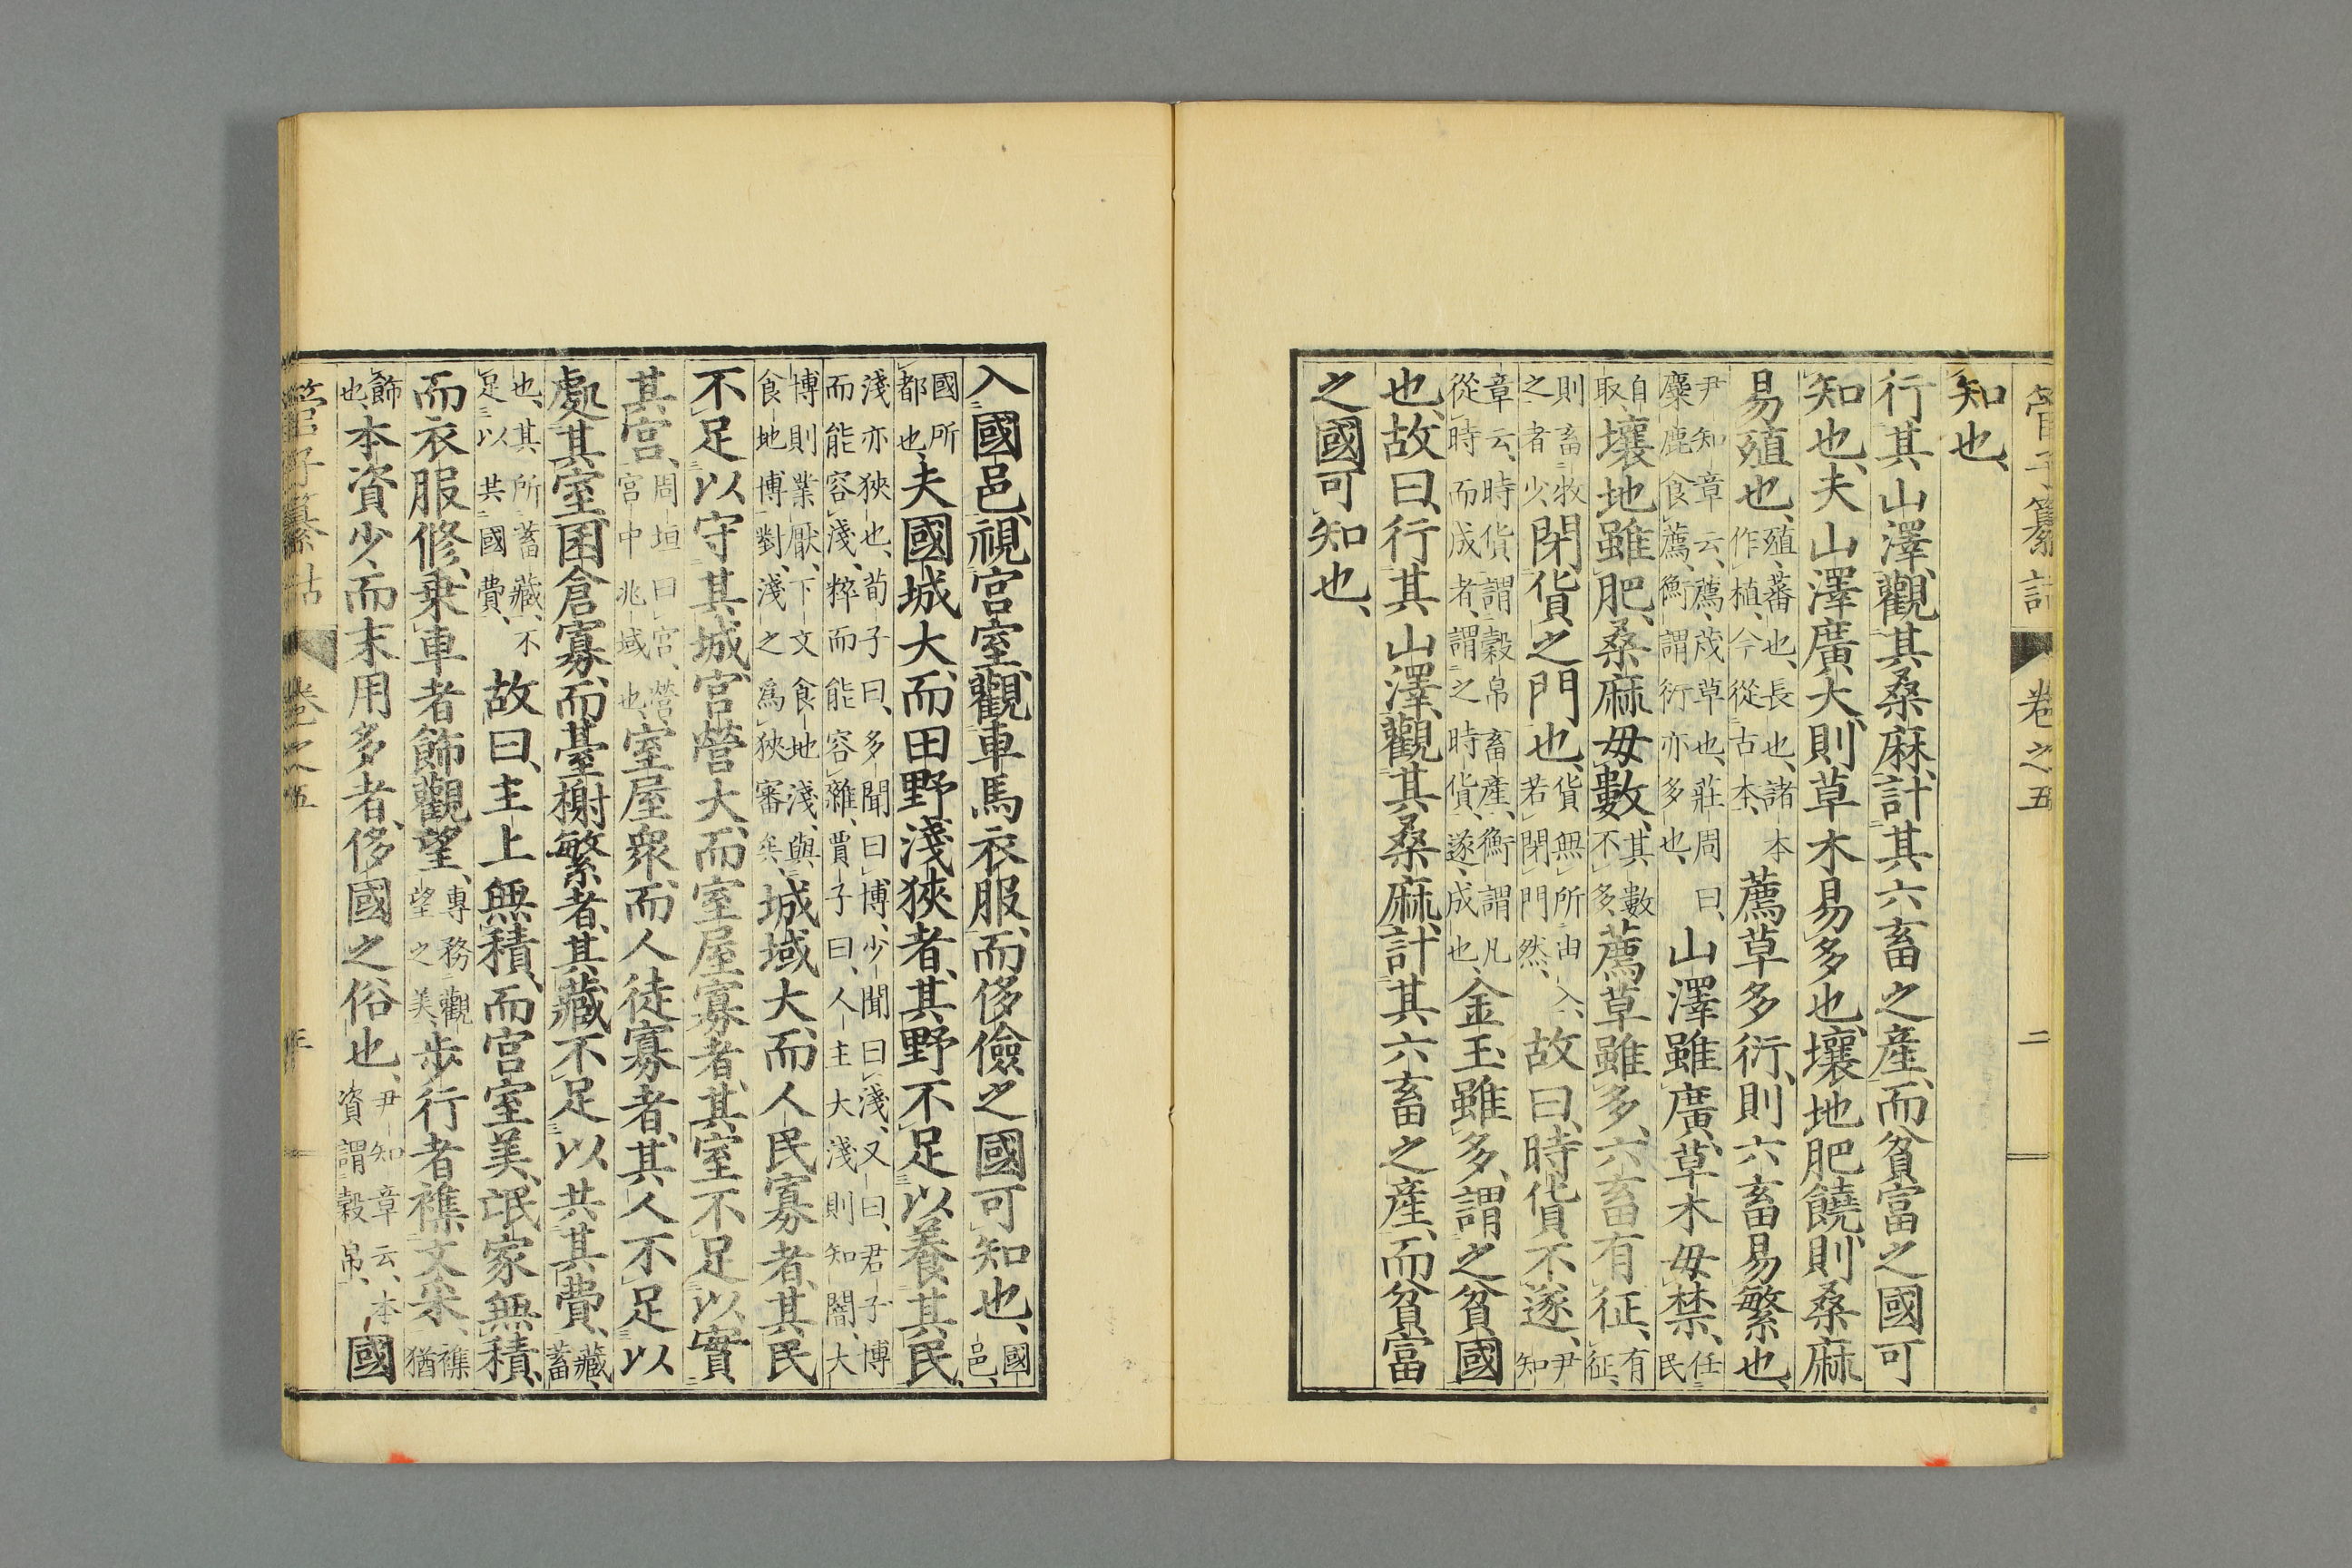 管子纂詁　卷之五　二
知也、
行其山澤、觀其桑麻、計其六畜之產、而貧富之國可
知也、夫山澤廣大、則草木易多也、壤地肥饒、則桑麻
易殖也、殖、蕃也、長也、諸本作植、今從古本、薦草多衍、則六畜易繁也、
尹知章云、薦、茂草也、莊周曰、麋鹿食薦、衡謂衍亦多也、山澤雖廣、草木毋禁、任民
自取、壤地雖肥、桑麻毋數、其數不多、薦草雖多、六畜有征、有征、
則畜牧之者少、閉貨之門也、貨無所由入、若閉門然、故曰、時貨不遂、尹知
章云、時貨、謂穀帛畜產、衡謂凡從時而成者、謂之時貨、遂、成也、金玉雖多、謂之貧國
也、故曰、行其山澤、觀其桑麻、計其六畜之產、而貧富
之國可知也、
入國邑、視宮室、觀車馬衣服、而侈儉之國可知也、國邑、
國所都也、夫國城大、而田野淺狹者、其野不足以養其民、
淺亦狹也、荀子曰、多聞曰博、少聞曰淺、又曰、君子博而能容淺、粹而能容雜、賈子曰、人主大淺則知闇、大
博則業厭、下文食地淺、與食地博對、淺之爲狹審矣、城域大、而人民寡者、其民
不足以守其城、宮營大、而室屋寡者、其室不足以實
其宮、周垣曰宮、營宮中兆域也、室屋衆、而人徒寡者、其人不足以
處其室、囷倉寡、而臺榭繁者、其藏不足以共其費、藏、蓄
也、其所蓄藏、不足以共國費、故曰、主上無積、而宮室美、氓家無積、
而衣服修、乗車者飾觀望、專務觀望之美、步行者襍文采、襍猶
飾也、本資少、而末用多者、侈國之俗也、尹知章云、本資謂穀帛、國
管子纂詁　卷之五